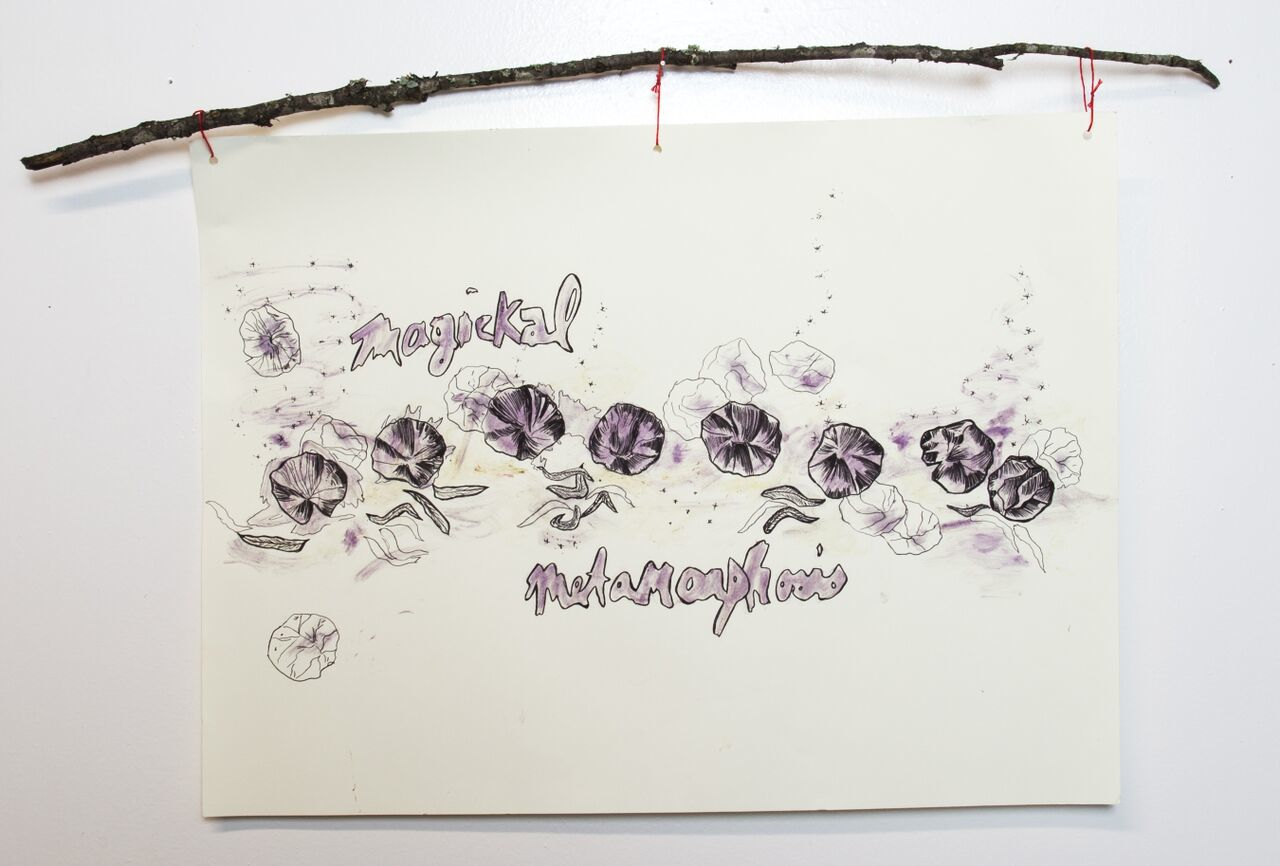 magickal
metamorphosis